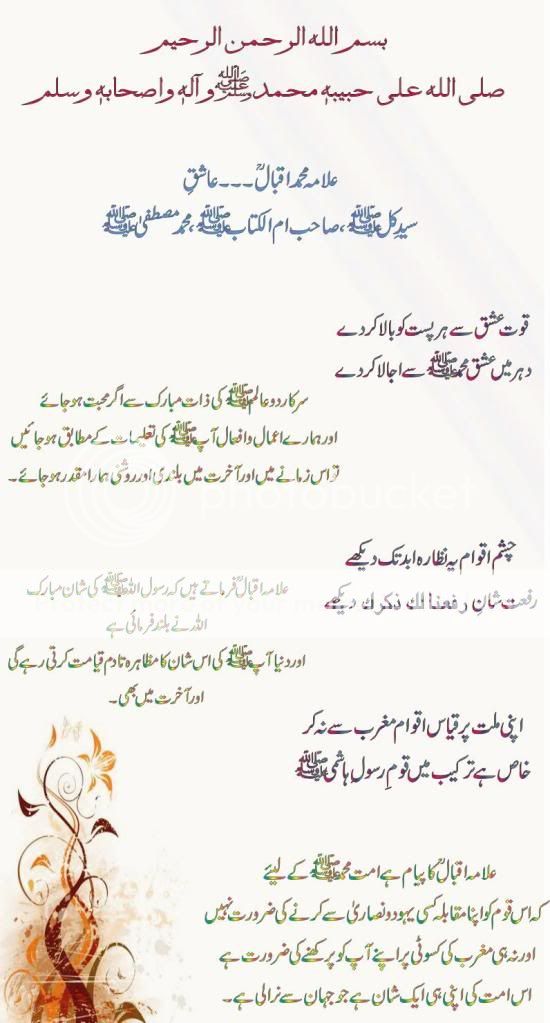 بسم الله الرحمن الرحیم
صلی الله علی حبیبہٖ محمدﷺ وآلہٖ واصحابہٖ وسلم
علامہ محمد اقبالؒ ۔۔۔ عاشقِ
سیدِ کلﷺ، صاحب ام الکتابﷺ، محمد مصطفیٰﷺ
قوت عشق سے ہر پست کو بالا کر دے
دہر میں عشق محمدﷺ سے اجالا کر دے
سرکار دو عالمﷺ کی ذات مبارک سے اگر محبت ہو جائے
اور ہمارے اعمال و افعال آپﷺ کی تعلیمات کے مطابق ہو جائیں
تو اس زمانے میں اور آخرت میں بلندی اور روشنی ہمارا مقدر ہو جائے۔
photobucket
چشم اقوام یہ نظارہ ابد تک دیکھے
رفعت شان رفعنا لك ذكرك دیکھے
علامہ اقبالؒ فرماتے ہیں کہ رسول اللہﷺ کی شان مبارک
اللہ نے بلند فرمائی ہے
اور دنیا آپﷺ کی اس شان کا مظاہرہ تا دم قیامت کرتی رہے گی
اور آخرت میں بھی۔
اپنی ملت پر قیاس اقوام مغرب سے نہ کر
خاص ہے ترکیب میں قومِ رسولِ ہاشمیﷺ
علامہ اقبالؒ کا پیام ہے امت محمدﷺ کے لیئے
کہ اس قوم کو اپنا مقابلہ کسی یہود و نصاریٰ سے کرنے کی ضرورت نہیں
اور نہ ہی مغرب کی کسوٹی پر اپنے آپ کو پرکھنے کی ضرورت ہے
اس امت کی اپنی ہی ایک شان ہے جو جہان سے نرالی ہے۔